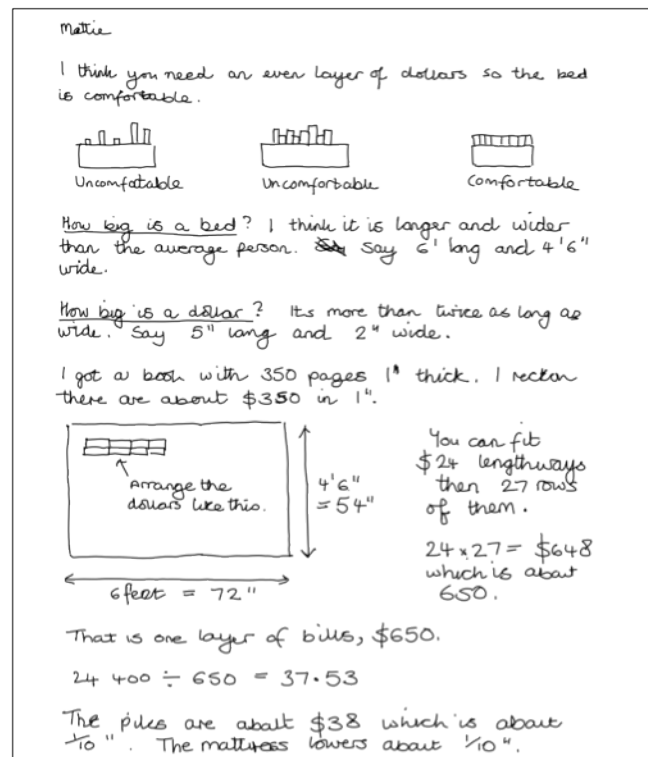 Mattie
I think you need an even layer of dollars so the bed
is comfortable.
Uncomfatable
Uncomfortable
Comfortable
How big is a bed? I think it is longer and wider
than the average person. Say 6' long and 4'6"
wide.
How big is a dollar? Its more than twice as long as
wide. Say 5" long and 2" wide.
I got a book with 350 pages 1" thick. I reckon
there are about $350 in 1".
Arrange the
dollars like this.
4'6"
= 54"
6 feet = 72"
You can fit
$24 lengthways
then 27 rows
of them.
24 × 27 = $648
which is about
650.
That is one layer of bills, $650.
24 400 ÷ 650 = 37.53
The piles are about $38 which is about
1/10". The mattress lowers about 1/10".